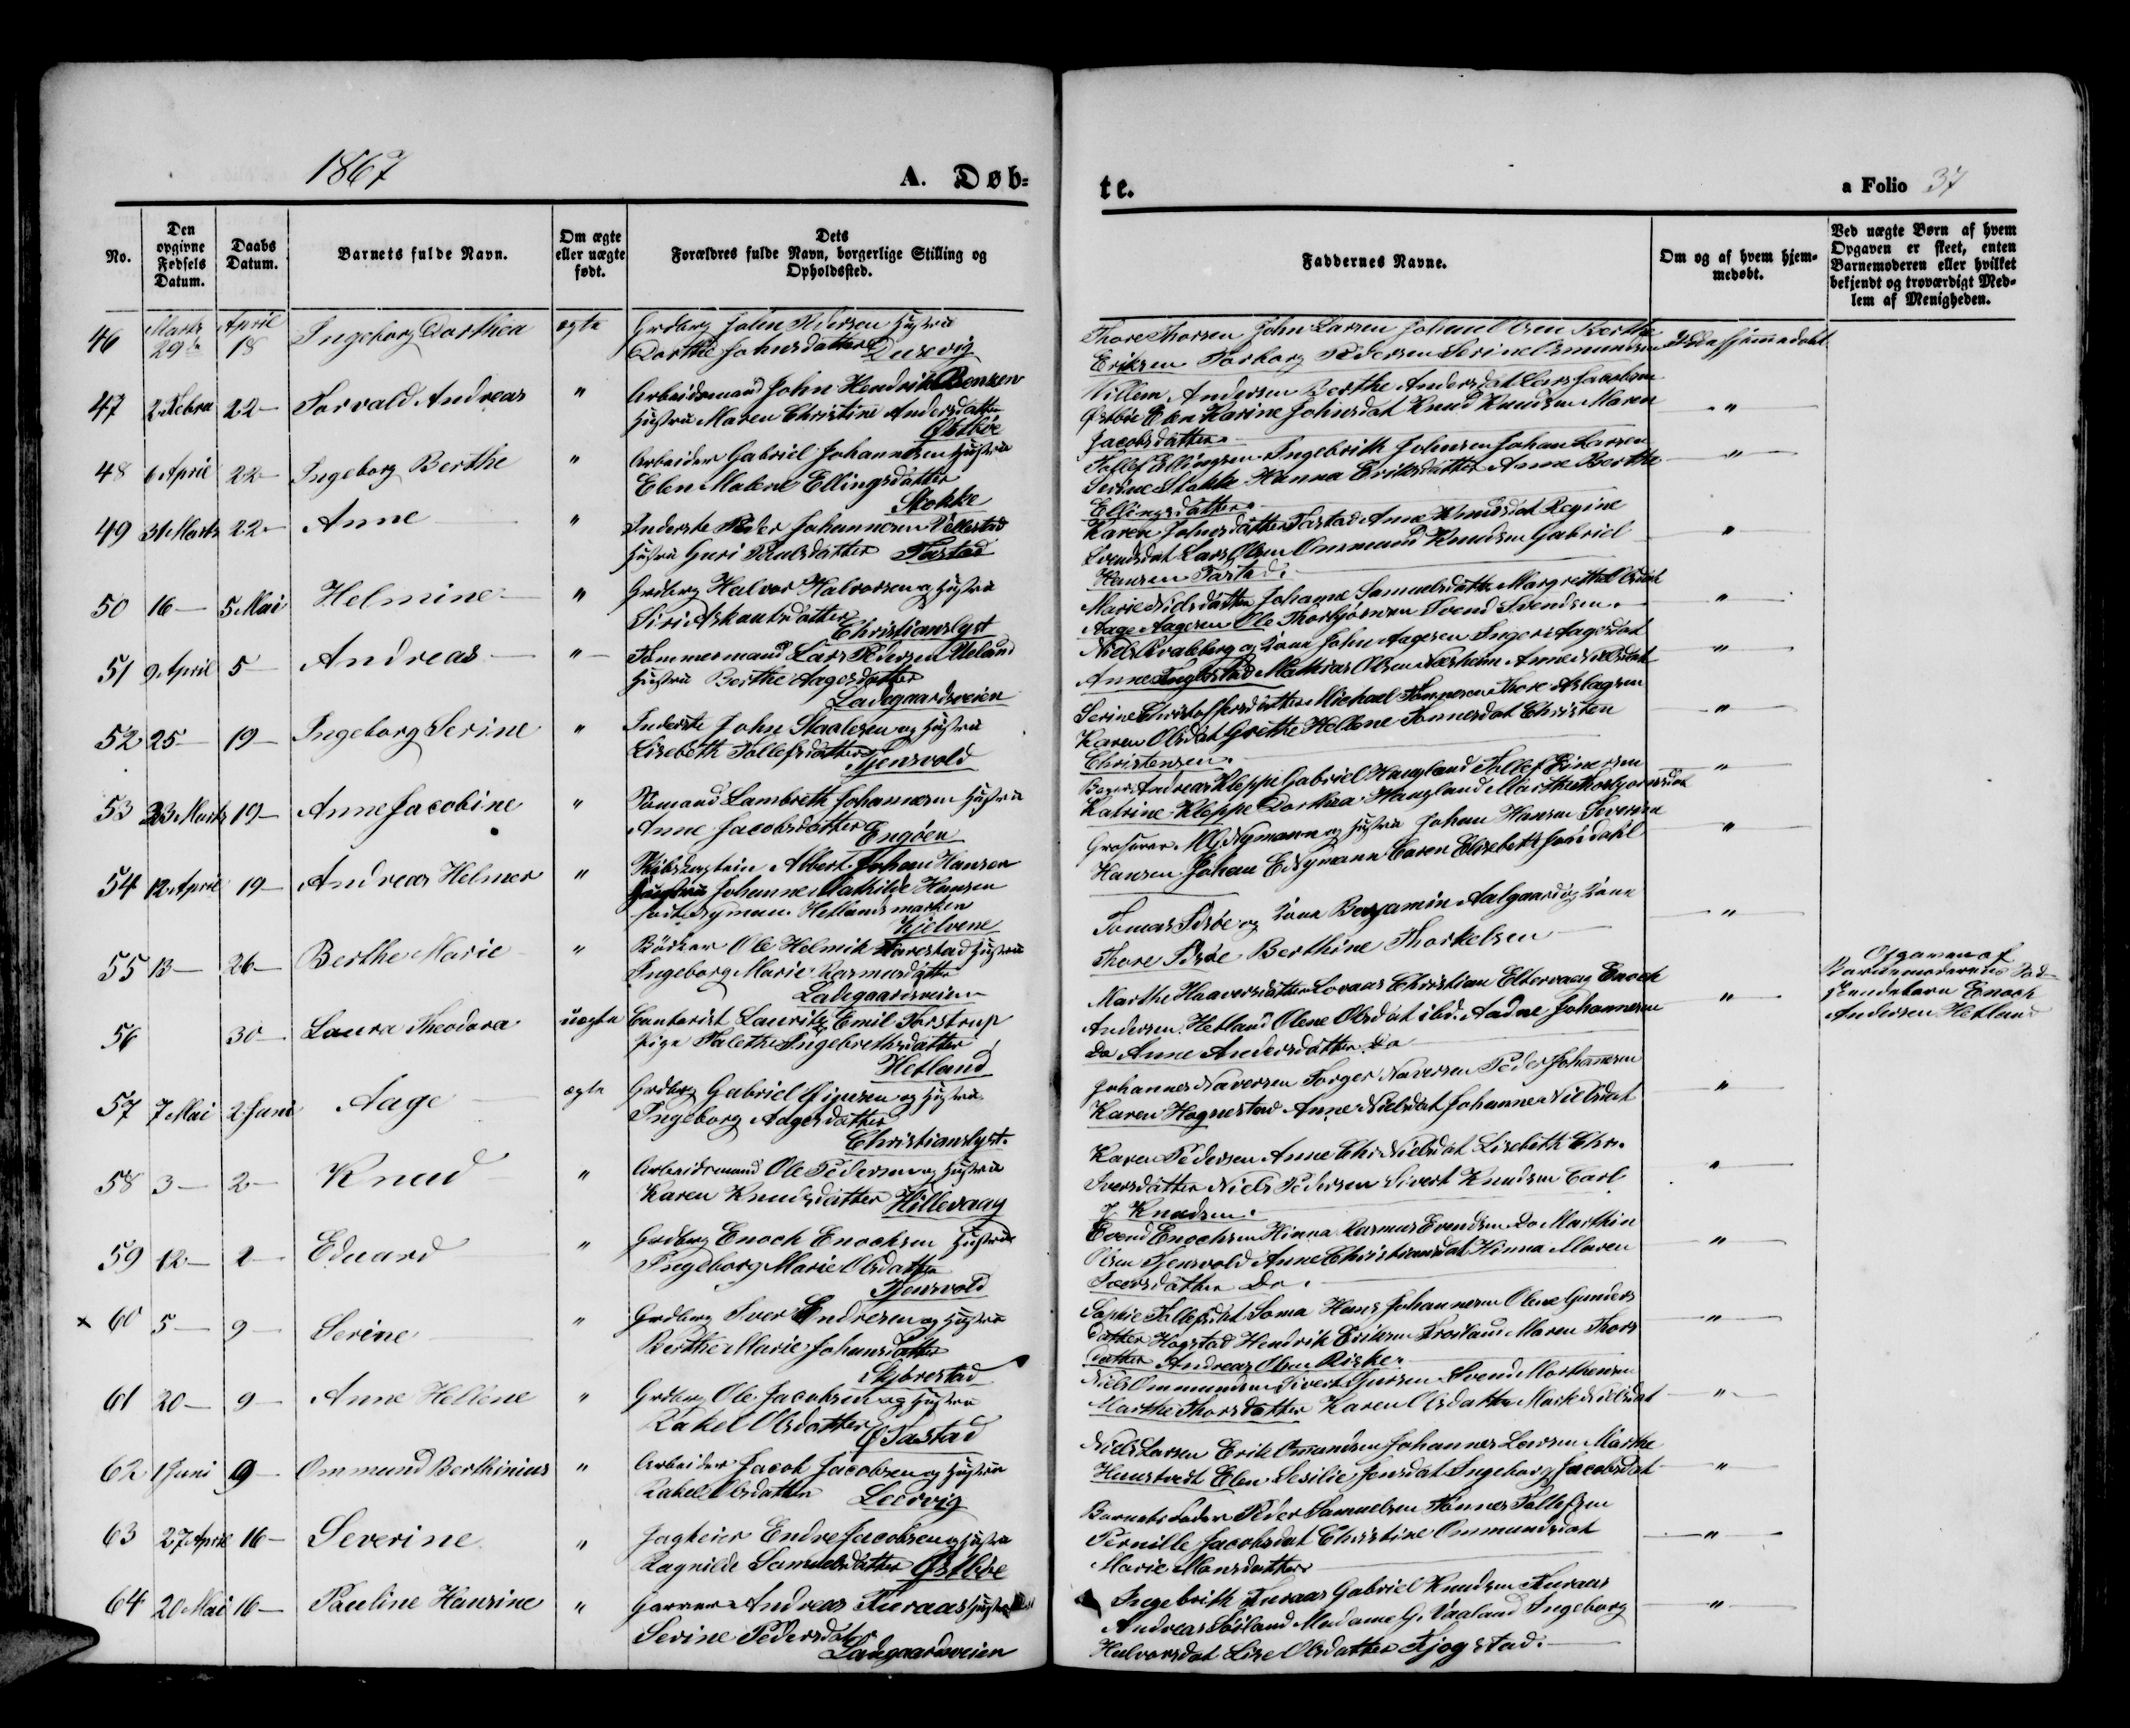 1867
A. Døb-
te.
a Folio 37
No.
Den opgivne Fødsels Datum.
Daabs Datum.
Barnets fulde Navn.
Om ægte eller uægte født.
Dets Forældres fulde Navn, borgerlige Stilling og Opholdssted.
Faddernes Navne.
Om og af hvem hjemmedøbt.
Ved uægte Børn af hvem Opgaven er skeet, enten Barnemoderen eller hvilket bekjendt og troværdigt Medlem af Menigheden.
46 Marts 29 April 18 Ingeborg Dorthea ægte Grdbrg John Pedersen Hustru
Dorthe Johnsdatter Dusevig
Thore Thorsen John Larsen Johan Olsen Berthe
Eriksen Torborg Pedersen Serine Osmundsen
47 2 Febru 22 Torvald Andreas " Arbeidsmand John Hendrik Bensen
Hustru Maren Christine Andersdatter
Østbøe
Villem Andersen Berthe Andersdat Lars Jacobsen
Østbøe Elen Karine Johnsdat Knud Knudsen Maren
Jacobsdatter "
48 6 April 22 Ingeborg Berthe " Arbeider Gabriel Johannesen Hustru
Elen Malene Ellingsdatter
Stokke
Tollef Ellingsen Ingebrith Johnsen Johan Larsen
Serine Stokke Hanna Eriksdatter Anne Berthe
Ellingsdatter "
49 31 Marts 22 Anne " Inderste Peder Johannesen Vollestad
Hustru Guri Paulsdatter Tastad
Karen Johnsdatter Tastad Anne Knudsdat Regine
Svendsdat Lars Olsen Ommund Knudsen Gabriel
Hansen Tastad. "
50 16 5 Mai Helmine " Grdbrg Halvor Halvorsen og Hustru
Siri Askautsdatter
Christianslyst
Marie Nielsdatter Johanne Samuelsdatter Margrethe Olsdat
Aage Aagesen Ole Thorbjørnsen Svend Svendsen. "
51 9 April 5 Andreas " Tømmermand Lars Pedersen Ueland
Hustru Berthe Aagesdatter
Ladegaardsveien
Niels Kvalaberg og Kone John Aagesen Inger Aagesdat
Anne Mathias Olsen Næsheim Anne Nielsdat "
52 25 19 Ingeborg Serine " Inderste John Staalesen og Hustru
Lisebeth Tollefsdatter Tjensvold
Serine Christoffersdatter Michael Tønnesen Thore Aslagsen
Karen Olsdat Grethe Hellene Tønnesdat Christen
Christensen. "
53 23 Marts 19 Anne Jacobine " Sømand Lambreth Johannesen Hustru
Anne Jacobsdatter Engøen
Bager Andreas Kleppe Gabriel Haugland Tollef Einersen
Katrine Kleppe Dorthea Haugland Marthe Thorbjørnsdat "
54 12 April 19 Andreas Helmer " Skibskaptein Albert Johan Hansen
Hustru Johanne Mathilde Hansen
født Nyman. Hetlandsmarken
Kjelvene
Grosserer M. G. Nymann og Hustru Johan Hansen Severine
Hansen Johan E. Nymann Caren Elisebeth "
55 13 26 Berthe Marie " Bødker Ole Helmik Harestad Hustru
Ingeborg Marie Rasmusdatter
Ladegaardsveien
Tomas Tisøe og Kone Benjamin Aalgaard og Kone
Thore Tisøe Berthine Thorkelsen "
56 30 Laura Theodora uægte Contorist Lauritz Emil Torstrup
Pige Talethe Ingebrethsdatter
Hetland
Marthe Haaversdatter Lovaas Christian Eltervaag Enoch
Andersen Hetland Olene Olsdat ibd. Aadne Johannesen
Do Anne Andersdatter Do "
Opgaven af
Barnemoderens Hus-
Enoch
Andersen Hetland
57 7 Mai 2 Juni Aage ægte Grdbrg Gabriel Einersen og Hustru
Ingeborg Aagesdatter
Christianslyst.
Johannes Naversen Torger Naversen Peder Johannesen
Karen Hognestad Anne Nielsdat Johanne Nielsdat "
58 3 2 Knud " Arbeidsmand Ole Pedersen og Hustru
Karen Knudsdatter Hillevaag
Karen Pedersen Anne Chr Nielsdat Lisebeth Chr.
Iversdatter Niels Pedersen Sivert Knudsen Carl
J Knudsen. "
59 12 2 Eduard " Grdbrg Enoch Enochsen Hustru
Ingeborg Marie Olsdatter
Tjensvold
Evend Enochsen Hinna Rasmus Evendsen Do Marthin
Olsen Tjensvold Anne Christiansdat Hinna Maren
Do. "
x 60 5 9 Serine " Grdbrg Iver Endresen og Hustru
Berthe Marie Johansdatter
Skjibrestad
Sophie Tollefsdat Soma Hans Johannesen Olene Gunders
datter Hogstad Hendrik Eriksen Maren Thors
datter Andreas Olsen Riske. "
61 20 9 Anne Hellene " Grdbrg Ole Jacobsen og Hustru
Rakel Olsdatter Ø Tastad
Niels Ommundsen Sivert Svend Morthensen
Marthe Thorsdatter Karen Olsdatter Marthe Nielsdat "
62 1 Juni 9 Ommund Berthinius " Arbeider Jacob Jacobsen og Hustru
Rakel Olsdatter Leervig
Niels Larsen Erik Omundsen Johannes Larsen Marthe
Hunstvedt Elen Sesilie Jensdat Ingeborg Jacobsdat "
63 27 April 16 Severine " Jagteier Endre Jacobsen og Hustru
Ragnilde Samuelsdatter Østbøe
Barnets Fader Peder Samuelsen Tønnes Tollefsen
Pernille Jacobsdat Christine Ommundsdat
Marie Monsdatter "
64 20 Mai 16 Pauline Hansine " Garver Andreas Auraas Hustru
Serine Pedersdat
Ladegaardsveien
Ingebrith Auraas Gabriel Knudsen Auraas
Andreas Sørland Madame G. Vaaland Ingeborg
Halvorsdat Lise Olsdatter Kjogstad. "